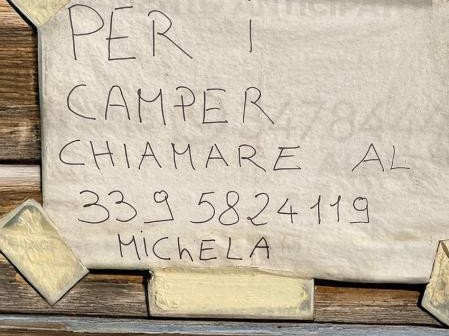 PER I
CAMPER
CHIAMARE AL
339 5824119
MIChELA